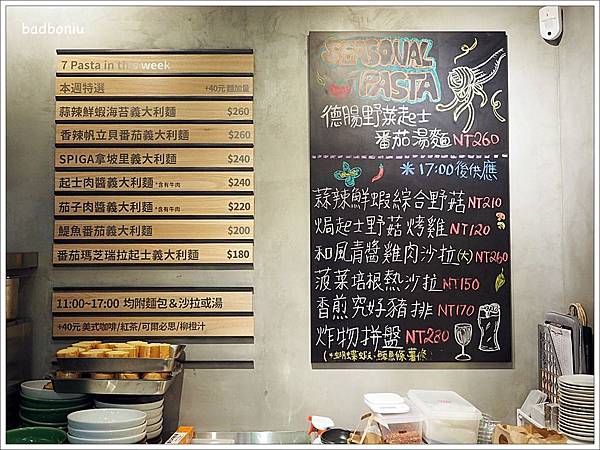 badboniu
7 Pasta in this week
本週特選 +40元 麵加量
蒜辣鮮蝦海苔義大利麵 $260
香辣帆立貝番茄義大利麵 $260
SPIGA拿坡里義大利麵 $240
起士肉醬義大利麵 *含有牛肉 $240
茄子肉醬義大利麵 *含有牛肉 $220
鯷魚番茄義大利麵 $200
番茄瑪芝瑞拉起士義大利麵 $180
11:00~17:00 均附麵包&沙拉或湯
+40元 美式咖啡/紅茶/可爾必思/柳橙汁
SEASONAL
PASTA
德腸野菜起士
番茄湯麵 NT260
※17:00後供應
蒜辣鮮蝦綜合野菇 NT210
焗起士野菇烤雞 NT120
和風青醬雞肉沙拉(大) NT260
菠菜培根熱沙拉 NT150
香煎究好豬排 NT170
炸物拼盤 NT280
(*蝴蝶蝦.鱈魚條.薯條